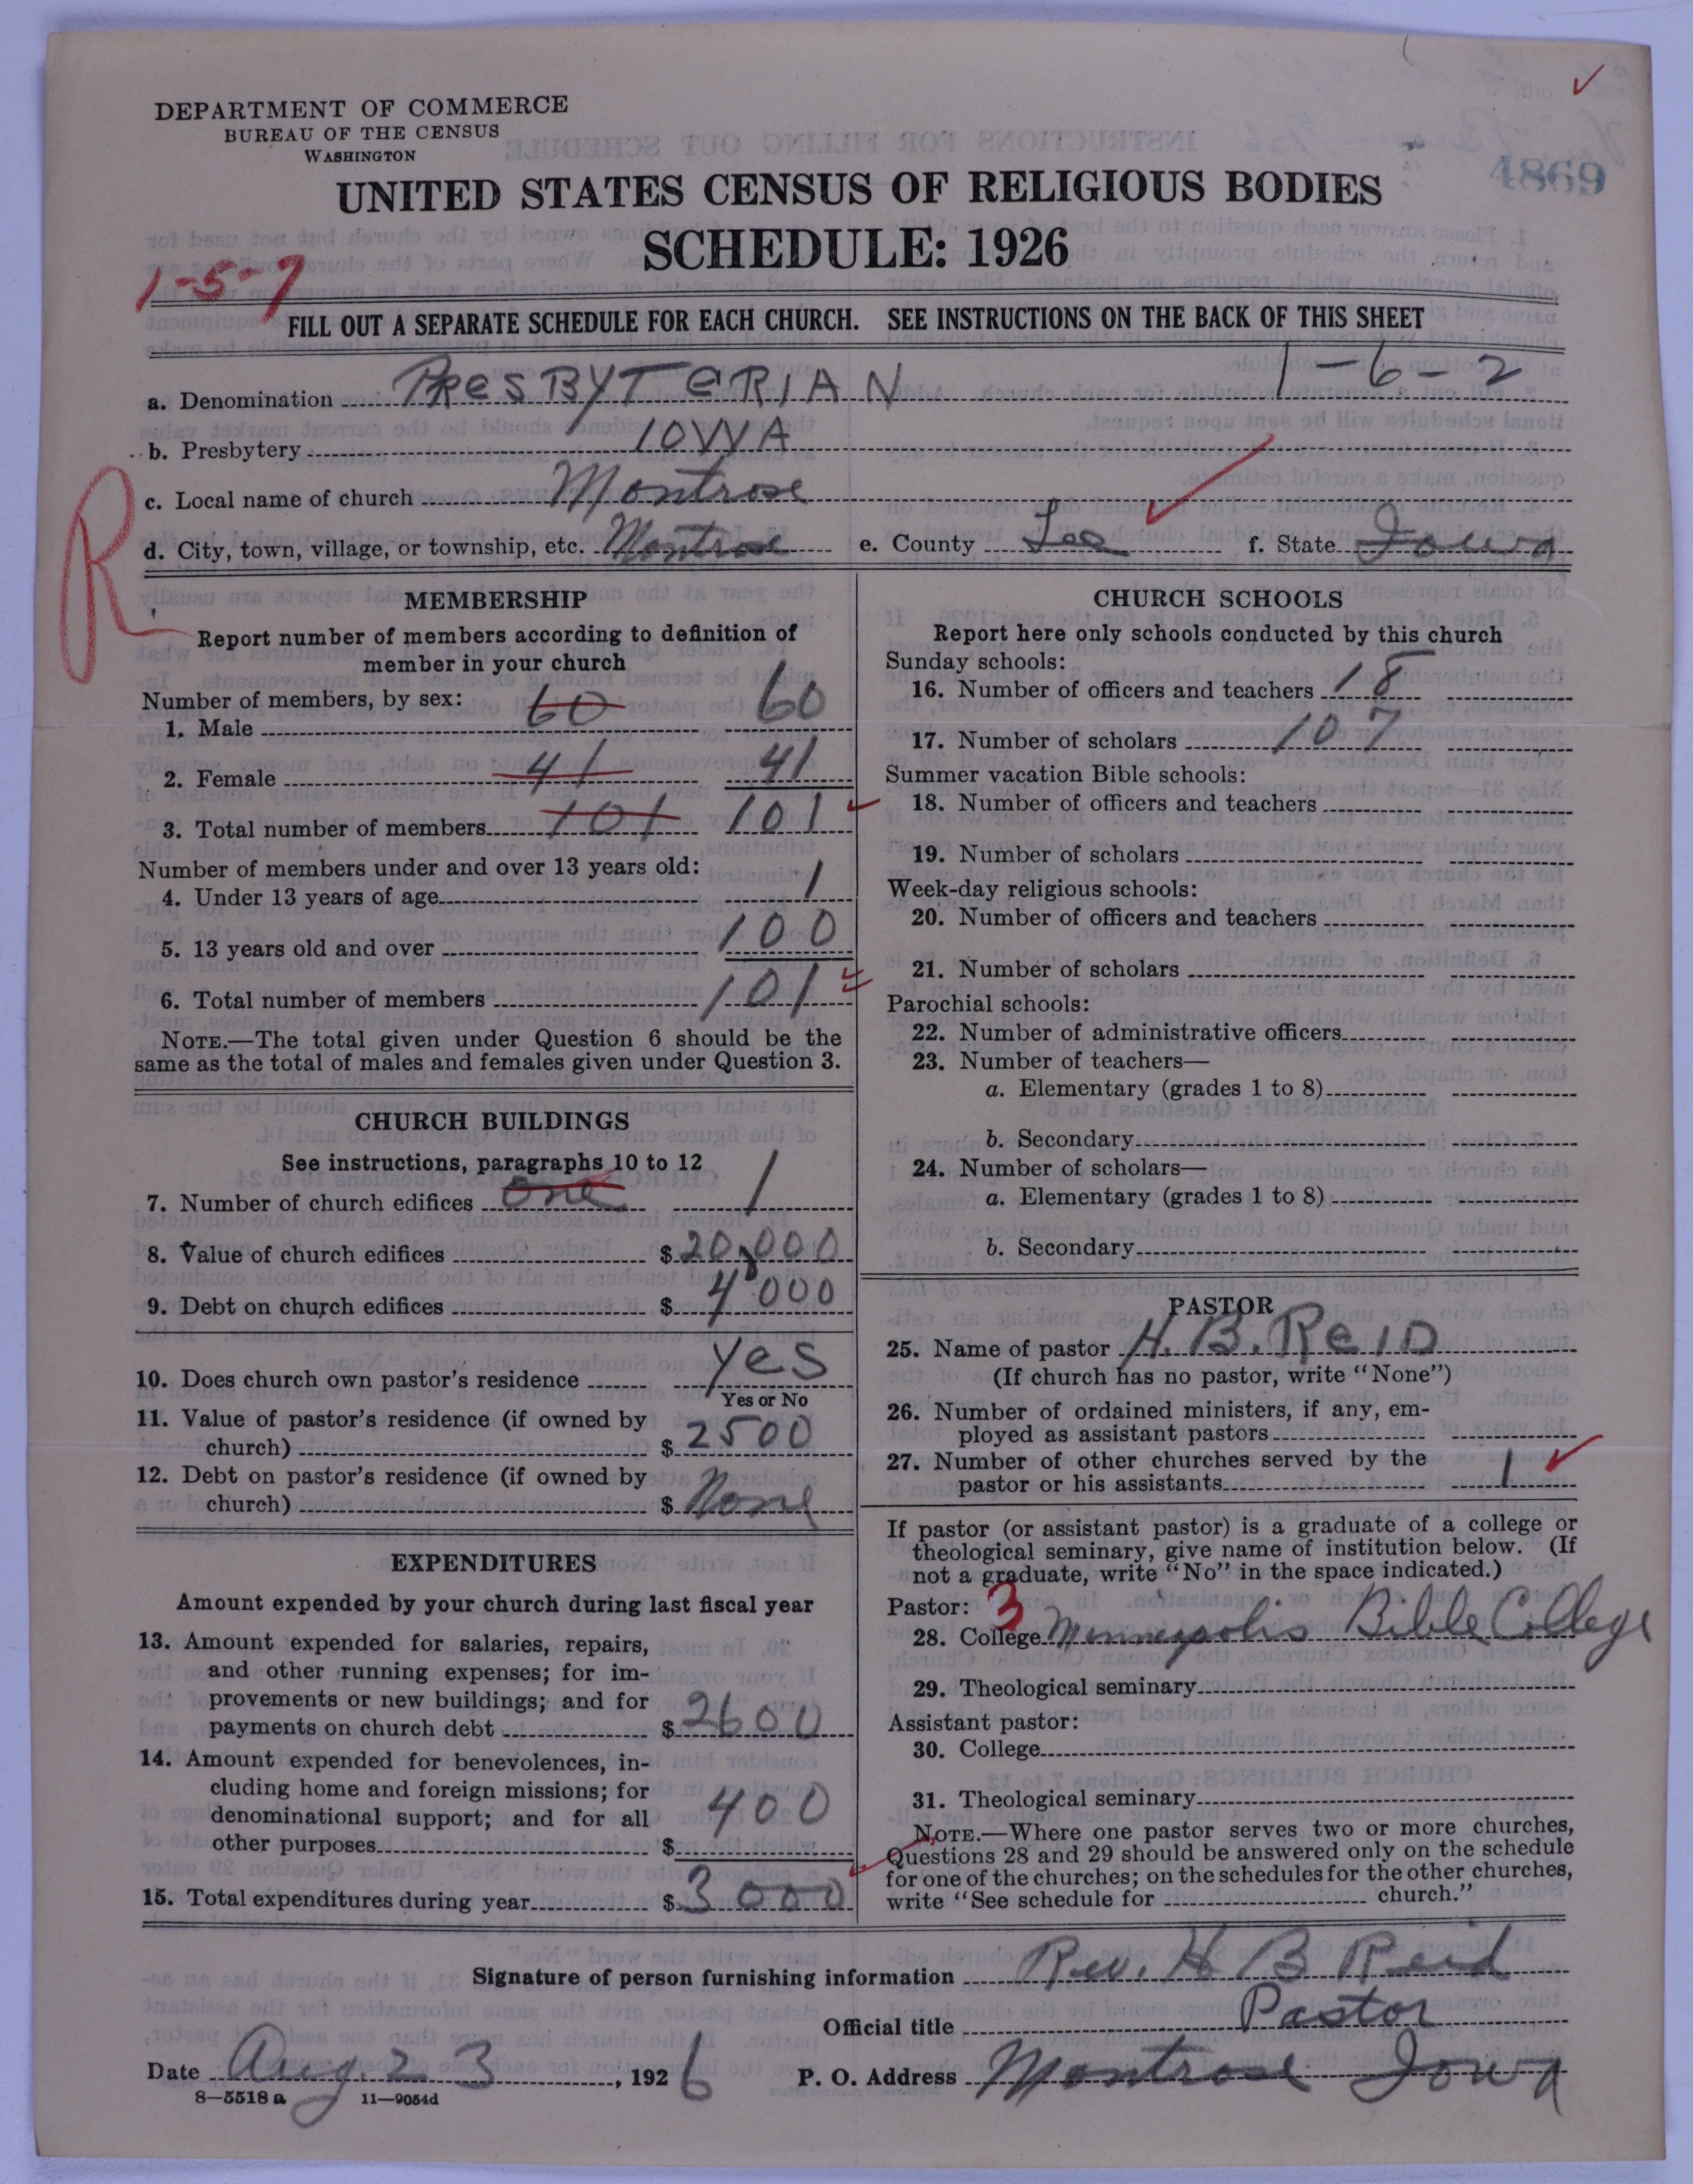 DEPARTMENT OF COMMERCE
BUREAU OF THE CENSUS
WASHINGTON
4869
UNITED STATES CENSUS OF RELIGIOUS BODIES
SCHEDULE: 1926
1-5-7
FILL OUT A SEPARATE SCHEDULE FOR EACH CHURCH. SEE INSTRUCTIONS ON THE BACK OF THIS SHEET
1-6-2
a. Denomination PRESBYTERIAN
b. Presbytery IOWA
c. Local name of church Montrose
d. City, town, village, or township, etc. Montrose e. County Lee f. State Iowa
R
MEMBERSHIP
Report number of members according to definition of
member in your church
Number of members, by sex:
1. Male 60 60
2. Female 41 41
3. Total number of members 101 101
Number of members under and over 13 years old:
4. Under 13 years of age 1
5. 13 years old and over 100
6. Total number of members 101
NOTE.—The total given under Question 6 should be the
same as the total of males and females given under Question 3.
CHURCH BUILDINGS
See instructions, paragraphs 10 to 12
7. Number of church edifices one 1
8. Value of church edifices $ 20,000
9. Debt on church edifices $ 4000
10. Does church own pastor's residence Yes
Yes or No
11. Value of pastor's residence (if owned by
church) $ 2500
12. Debt on pastor's residence (if owned by
church) $ None
EXPENDITURES
Amount expended by your church during last fiscal year
13. Amount expended for salaries, repairs,
and other running expenses; for im-
provements or new buildings; and for
payments on church debt $ 2600
14. Amount expended for benevolences, in-
cluding home and foreign missions; for
denominational support; and for all
other purposes $ 400
15. Total expenditures during year $ 3000
CHURCH SCHOOLS
Report here only schools conducted by this church
Sunday schools:
16. Number of officers and teachers 18
17. Number of scholars 107
Summer vacation Bible schools:
18. Number of officers and teachers
19. Number of scholars
Week-day religious schools:
20. Number of officers and teachers
21. Number of scholars
Parochial schools:
22. Number of administrative officers
23. Number of teachers—
a. Elementary (grades 1 to 8)
b. Secondary
24. Number of scholars—
a. Elementary (grades 1 to 8)
b. Secondary
PASTOR
25. Name of pastor H. B. REID
(If church has no pastor, write "None")
26. Number of ordained ministers, if any, em-
ployed as assistant pastors
27. Number of other churches served by the
pastor or his assistants 1
If pastor (or assistant pastor) is a graduate of a college or
theological seminary, give name of institution below. (If
not a graduate, write "No" in the space indicated.)
Pastor: 3
28. College Minneapolis Bible College
29. Theological seminary
Assistant pastor:
30. College
31. Theological seminary
NOTE.—Where one pastor serves two or more churches,
Questions 28 and 29 should be answered only on the schedule
for one of the churches; on the schedules for the other churches,
write "See schedule for church."
Signature of person furnishing information Rev. H B Reid
Official title Pastor
Date Aug. 23, 1926 P. O. Address Montrose Iowa
8—5518 a 11—9054d